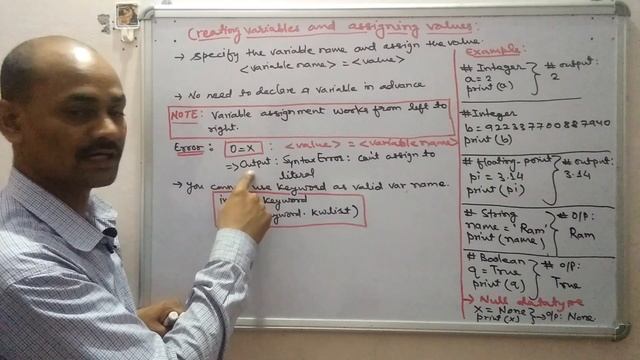 Creating variables and assigning values:
→ Specify the variable name and assign the value.
<variable name> = <value>
→ No need to declare a variable in advance
NOTE: Variable assignment works from left to
right.
Error: 0=x : <value> = <variable name>
=> Output: SyntaxError: can't assign to
literal
→ you use keyword as valid var name.
keyword
keyword.kwlist)
Example:
# Integer
a=2
print(a)
# output:
2
#Integer
b=922337700887940
print(b)
# floating-point
pi = 3.14
print(pi)
# output:
3.14
# String
name = 'Ram'
print(name)
# O/P:
Ram
# Boolean
q = True
print(q)
# O/P:
True
→ Null datatype
x = None
print(x) → O/P: None